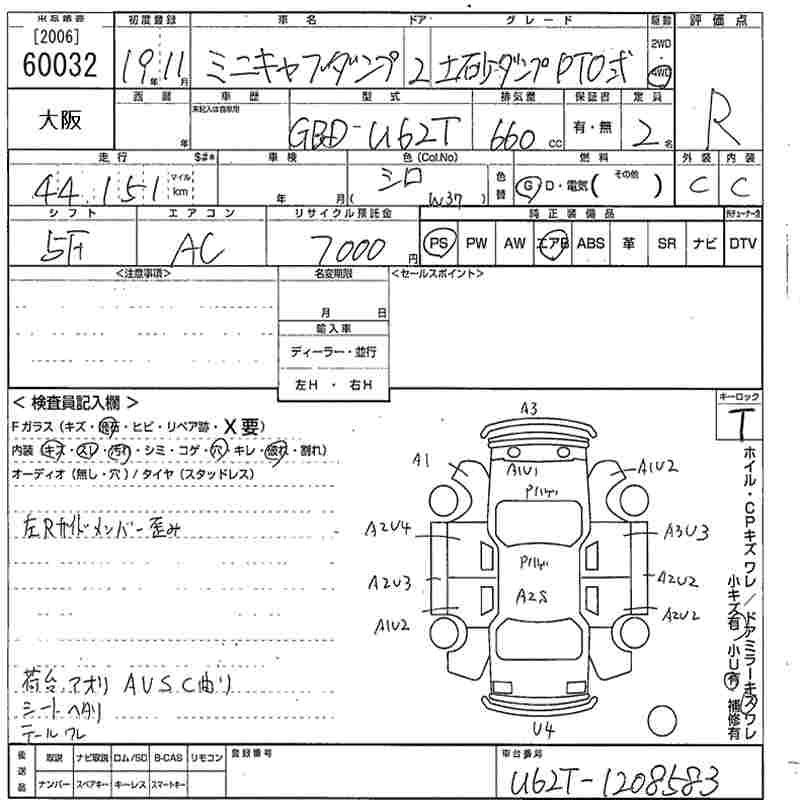 東京諸費 初度登録 車名 ドア グレード 駆動 評価点
[2006]
60032 19年11月 ミニキャブダンプ 2 土砂ダンプPTO式 2WD・4WD R
大阪 西暦 年 車歴 未記入は自家用 型式 排気量 保証書 定員
GBD-U62T 660 CC 有・無 2名
走行 S#* 車検 色(Col.No) 燃料 外装 内装
44,151 マイル km 年 月 シロ ( W37 ) 色替 G・D・電気( その他 ) C C
シフト エアコン リサイクル預託金 純正装備品
5F AC 7000円 PS PW AW エアB ABS 革 SR ナビ DTV
<注意事項> 名変期限 <セールスポイント>
月 日
輸入車
ディーラー・並行
左H ・ 右H
< 検査員記入欄 > キーロック
Fガラス (キズ・ ・ヒビ・リペア跡・X要) T
内装 (キズ・スレ・汚れ・シミ・コゲ・穴・キレ・破れ・割れ)
オーディオ (無し・穴) / タイヤ (スタッドレス)
左Rサイドメンバー歪み
荷台アオリ AUSC曲り
シートヘタリ
テールワレ
A3
A1 A1U1 A1U2
A2U4 A3U3
A2U3 A2S A2U2
A1U2 A2U2
U4
ホイル・CPキズ ワレ / ドアミラーキズ ワレ
小キズ有 / 小U有 補修有
後送品 取説 ナビ取説 ロム/SD B-CAS リモコン 登録番号 車台番号
ナンバー スペアキー キーレス スマートキー U62T-1208583